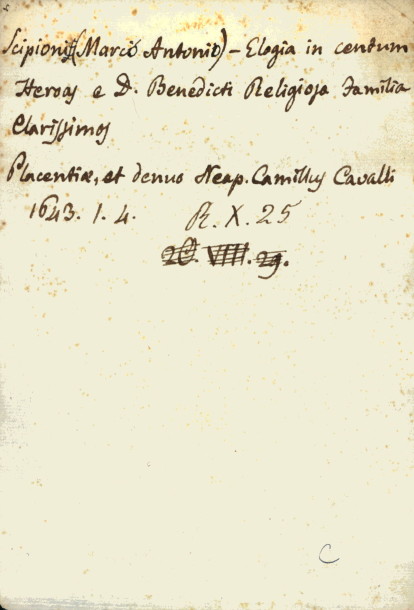 Scipioni (Marco Antonio) – Elogia in centum
Heroas e D. Benedicti Religiosa Familia
Clarissimos
Placentiæ, et denuo Neap. Camillus Cavalli
1643. 1. 4. R. X. 25
VIII. 29.
C